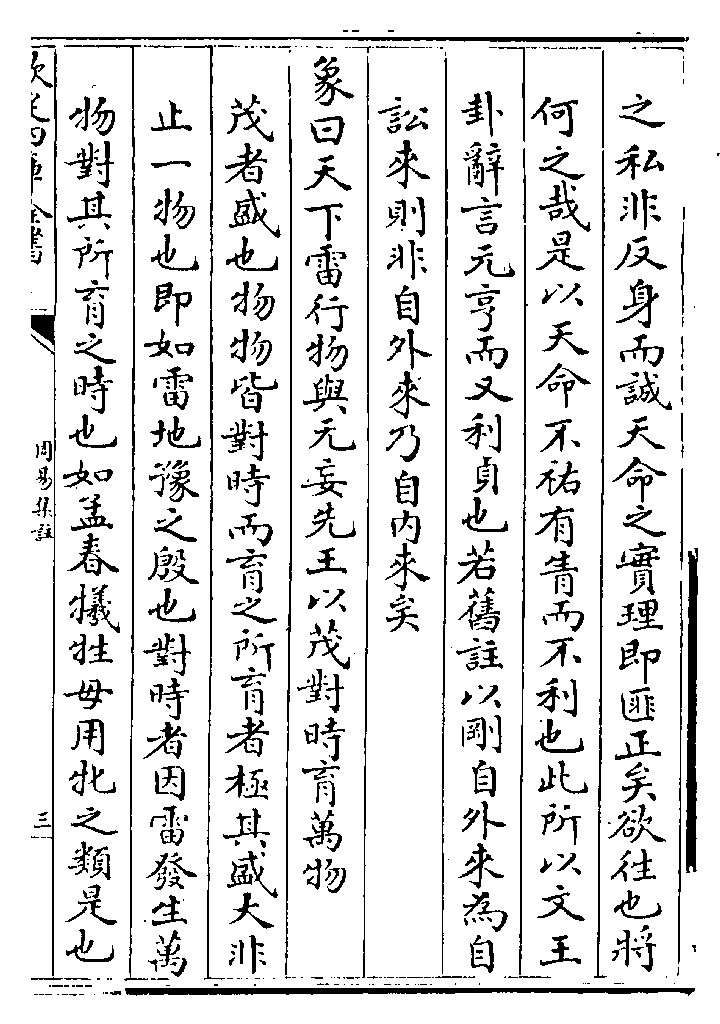 之私非反身而誠天命之實理即匪正矣欲往也將
何之哉是以天命不祐有眚而不利也此所以文王
卦辭言元亨而又利貞也若舊註以剛自外來為自
訟來則非自外來乃自内來矣
象曰天下雷行物與无妄先王以茂對時育萬物
茂者盛也物物皆對時而育之所育者極其盛大非
止一物也即如雷地豫之殷也對時者因雷發生萬
物對其所育之時也如孟春犧牲毋用牝之類是也
欽定四庫全書
周易集註
三